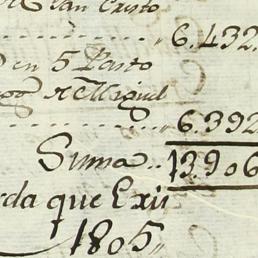 San Cristo
6.432.
en 5 Pasto
Miguel
6.392
Suma.. 13906
rda que Exis
1805,,